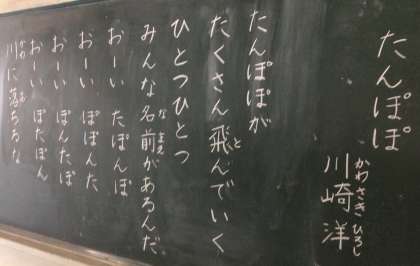 たんぽぽ
川崎洋
かわさきひろし
たんぽぽが
たくさん飛んでいく
と
ひとつひとつ
みんな名前があるんだ
なまえ
おーい たぽんぽ
おーい ぽぽんた
おーい ぽんたぽ
おーい ぽたぽん
川に落ちるな
かわ お